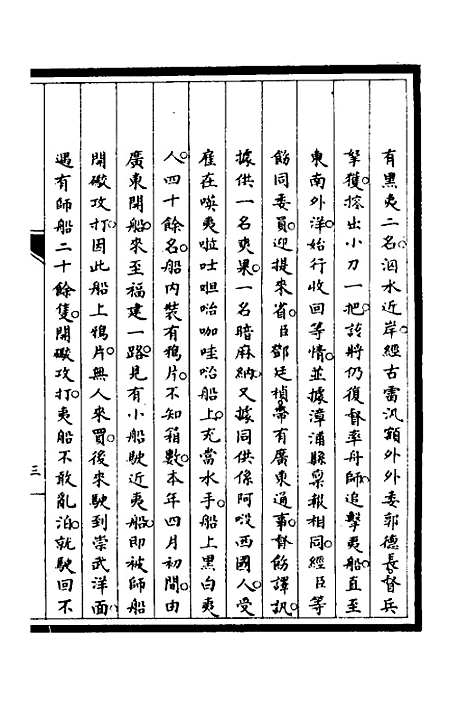 有黑夷二名泅水近岸經古雷汛額外外委郭德長督兵
拏獲搜出小刀一把該將仍復督率舟師追擊夷船直至
東南外洋始行收回等情並據漳浦縣稟報相同經臣等
飭同委員迎提來省臣鄧廷楨帶有廣東通事督飭譯訊
據供一名爽果一名暗麻納又據同供係阿嗼西國人受
雇在㗸夷啦吐呾咍咖哇咍船上充當水手船上黑白夷
人四十餘名船內裝有鴉片不知箱數本年四月初間由
廣東開船來至福建一路見有小船駛近夷船即被師船
開礮攻打因此船上鴉片無人來買後來駛到崇武洋面
遇有師船二十餘隻開礮攻打夷船不敢亂泊就駛回不
三